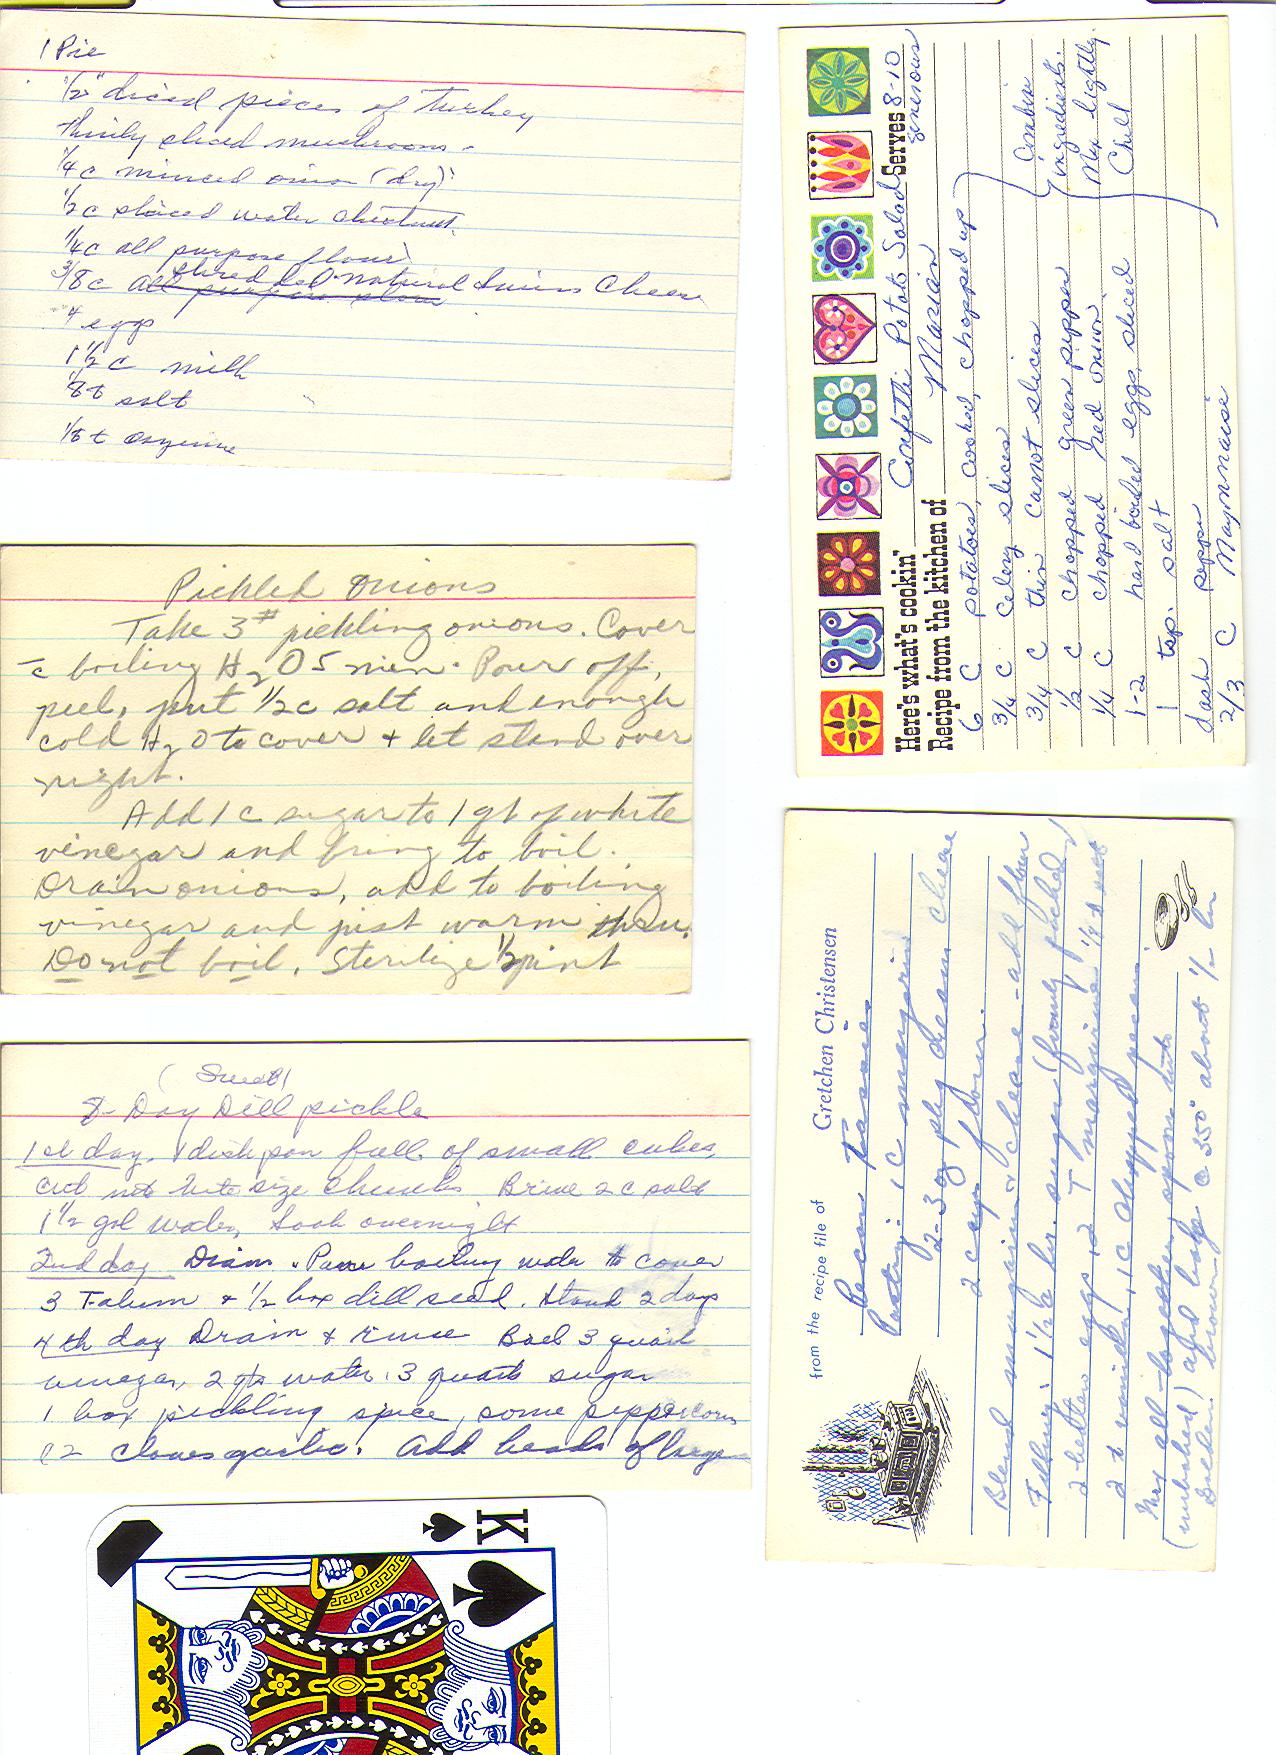 1 Pie
1/2" diced pieces of turkey
thinly sliced mushrooms
1/4 c minced onion (dry)
1/2 c sliced water chestnut
1/4 c all purpose flour
3/8 c all purpose flour shredded natural Swiss Cheese
4 eggs
1 1/2 c milk
1/8 t salt
1/8 t cayenne
Pickled Onions
Take 3# pickling onions. Cover
c boiling H2O 5 min. Pour off,
peel, put 1/2 c salt and enough
cold H2O to cover + let stand over
night.
Add 1 c sugar to 1 qt of white
vinegar and bring to boil.
Drain onions, add to boiling
vinegar and just warm thru.
Do not boil. Sterilize 1/2 pint
(Sweet)
8-Day Dill pickle
1st day. 1 dishpan full of small cukes,
cut into bite size chunks. Brine 2 c salt
1 1/2 gal water, soak overnight
2nd day Drain. Pour boiling water to cover
3 T alum + 1/2 box dill seed. Stand 2 days
4th day Drain & rinse Boil 3 quart
vinegar, 2 qts water. 3 quarts sugar
1 box pickling spice, some peppercorns
12 cloves garlic. Add heads of
K
Here's what's cookin' Confetti Potato Salad Serves 8-10
generous
Recipe from the kitchen of Marian
6 C potatoes, cooked, chopped up
3/4 C celery slices
3/4 C thin carrot slices
1/2 C chopped green pepper
1/4 C chopped red onion
1-2 hard boiled eggs, sliced
1 tsp. salt
dash pepper
2/3 C Mayonnaise
Combin
ingredients.
Mix lightly.
Chill
from the recipe file of Gretchen Christensen
Pecan Tassies
Pastry: 1 C margarine
2-3 oz pkg cream cheese
2 cups flour.
Blend margarine & cheese - add flour
Filling: 1 1/2 c br. sugar (firmly packed)
2 beaten eggs, 2 T margarine, 1/8 t salt
2 t vanilla, 1 C chopped pecans
Mix all together, spoon into
(unbaked) and bake @ 350° about 1/2 hr
Golden brown